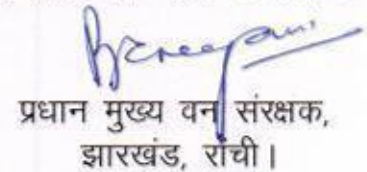 प्रधान मुख्य वन संरक्षक,
झारखंड, राँची।